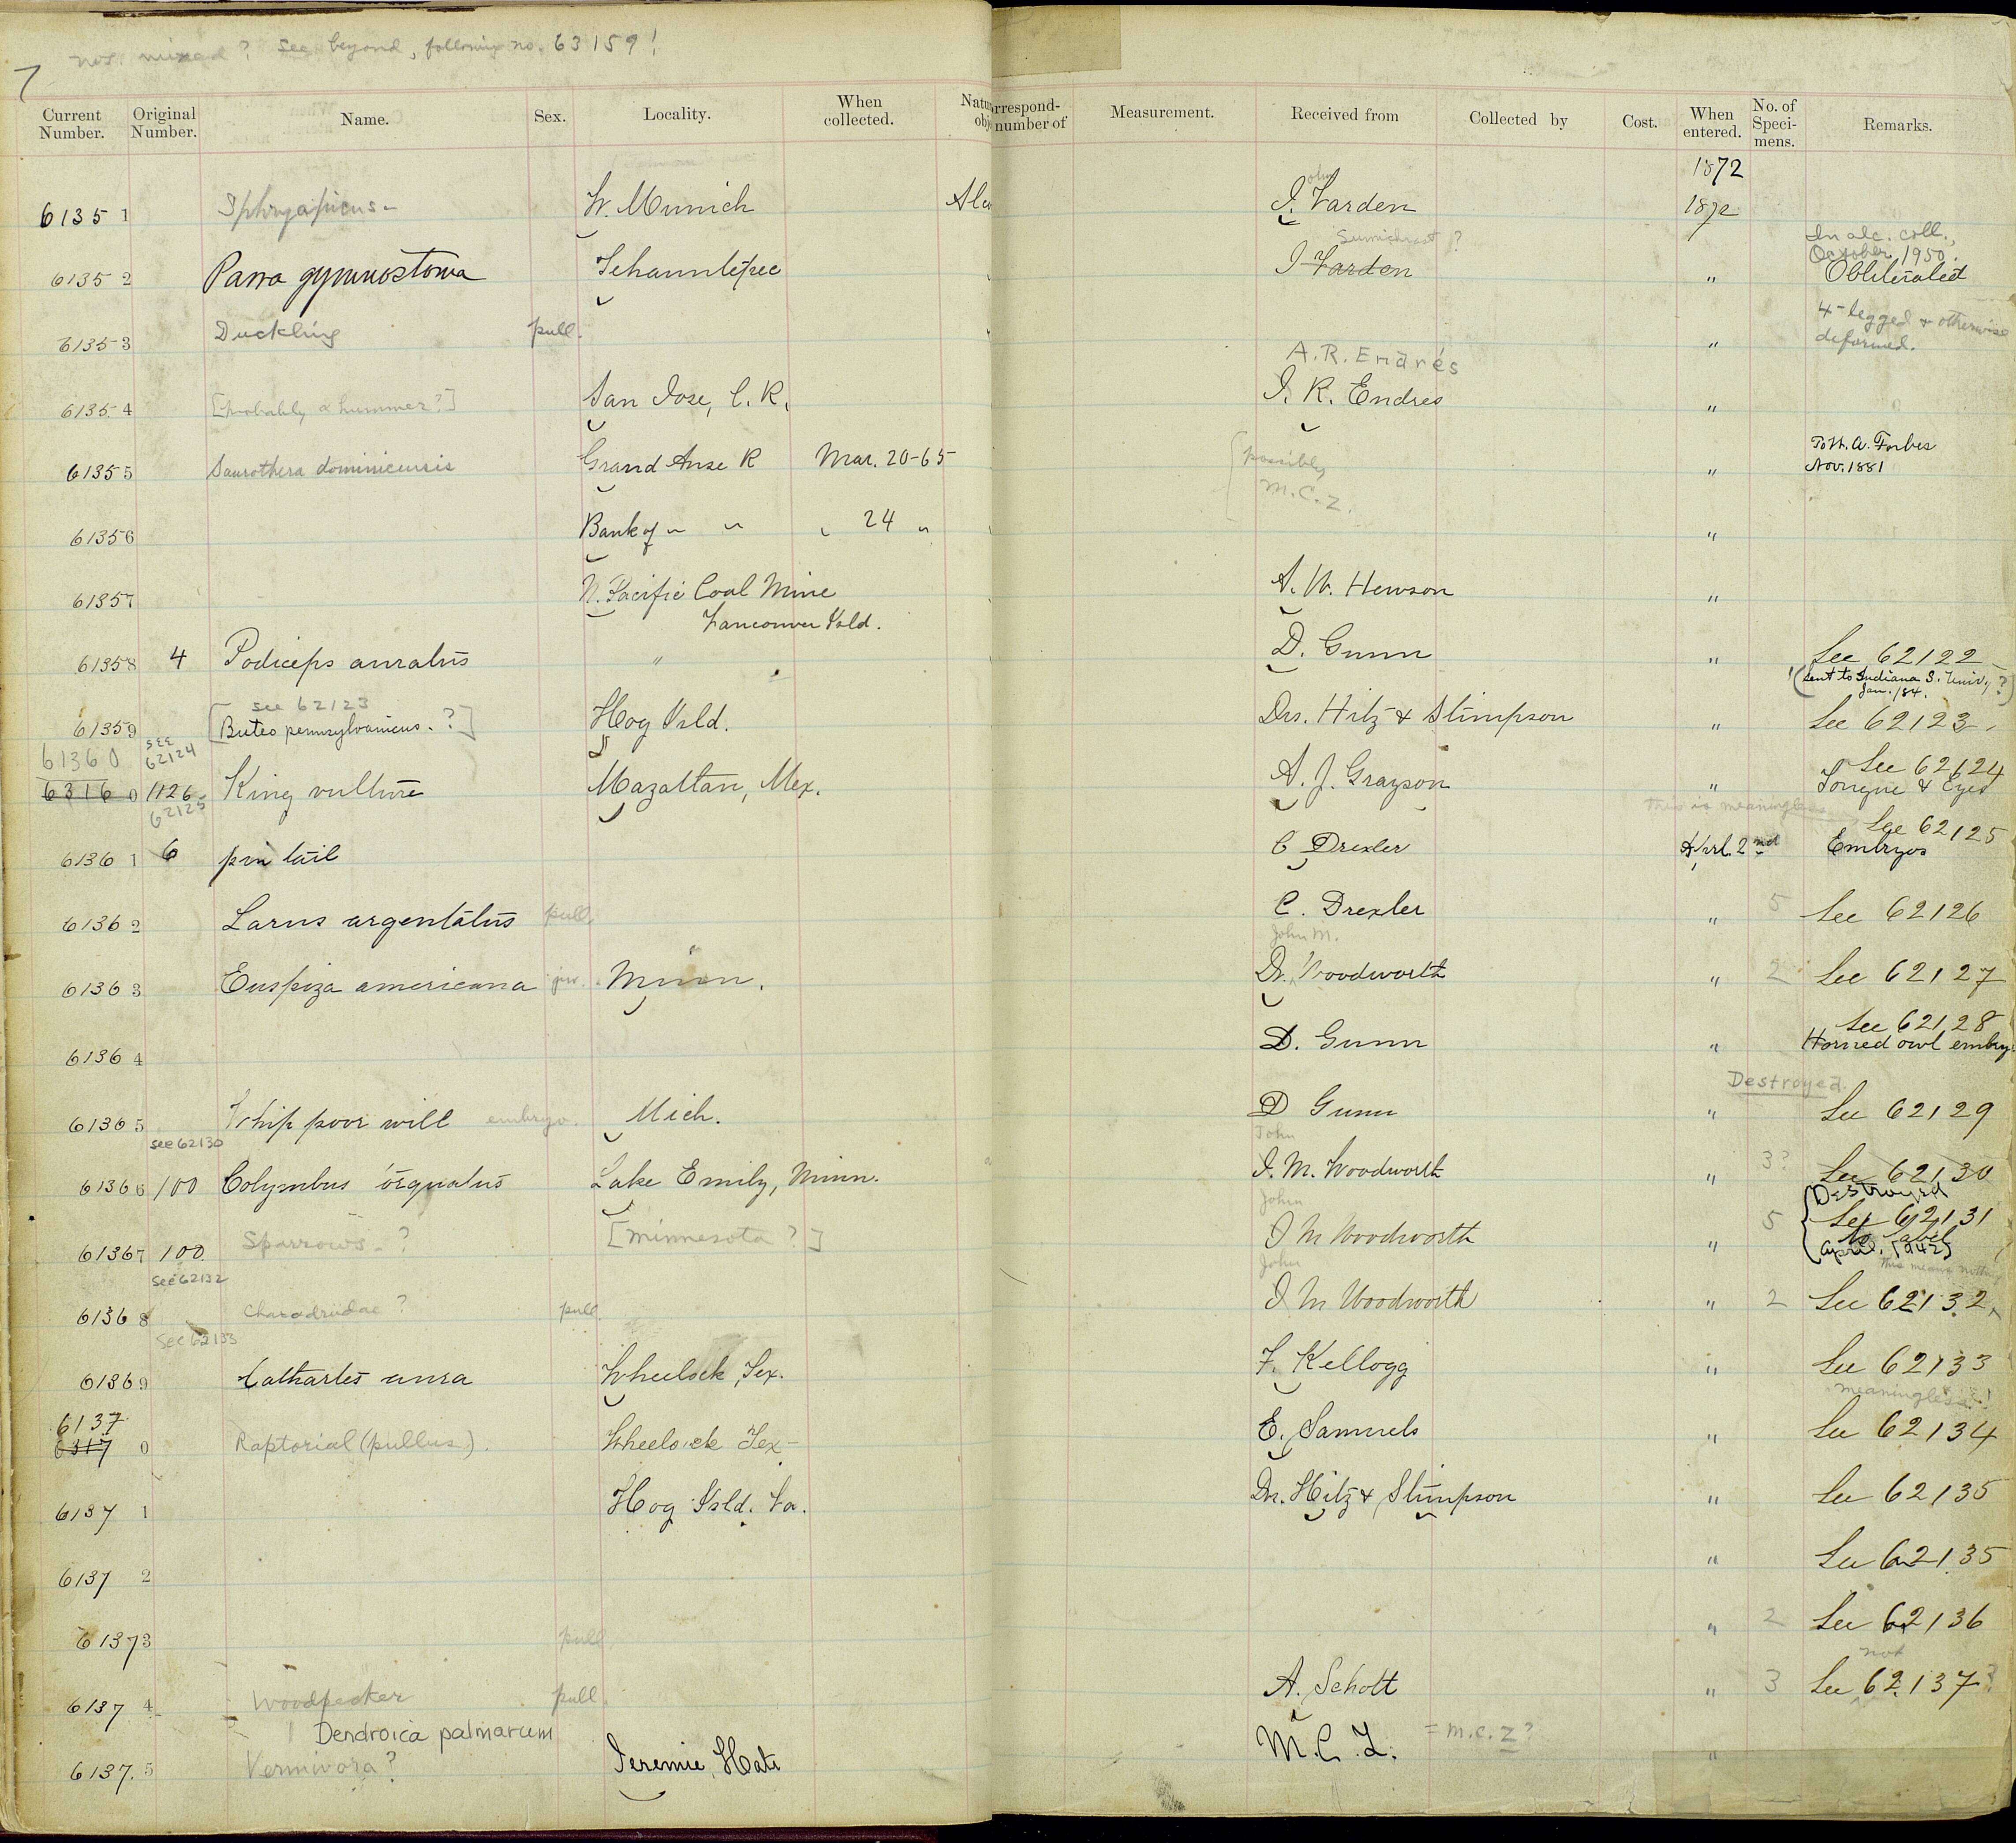 nos. mixed? See beyond, following no. 63159!
7
Current Number. Original Number. Name. Sex. Locality. When collected. Natu obj rrespond- number of Measurement. Received from Collected by Cost. When entered. No. of Speci- mens. Remarks.
1872
61351 Sphryapicus - W. Munich Alco J. Varden 1872
Sumichrast ? In alc. coll., October 1950.
61352 Parra gymnostoma Tehauntepec J Varden " Obliterated
61353 Duckling pull. " 4-legged & otherwise deformed.
A. R. Endrés
61354 [probably a hummer?] San Jose, C. R. J. R. Endres "
61355 Saurothera dominicensis Grand Anse R Mar. 20-65 possibly M.C.Z. " To W. A. Forbes Nov. 1881
61356 Bank of " " " 24 " "
61357 N. Pacific Coal Mine A. W. Hewson "
Vancouver Isld.
61358 4 Podiceps auratus " D. Gunn " See 62122
see 62123 (Sent to Indiana S. Univ., Jan. '84. ?)
61359 [Buteo pennsylvanicus. ?] Hog Isld. Drs. Hitz & Stimpson " See 62123
61360 see 62124 See 62124
63160 1126 King vulture Mazaltan, Mex. A. J. Grayson " Tongue & Eyes
62125 this is meaningless See 62125
61361 6 pin tail C Drexler Aprl. 2nd Embryos
61362 Larus argentatus pull. C. Drexler " 5 See 62126
John M.
61363 Euspiza americana juv. Minn. Dr. Woodworth " 2 See 62127
See 62128
61364 D. Gunn " Horned owl embry
Destroyed.
61365 Whip poor will embryo. Mich. D Gunn " See 62129
see 62130 John
61366 100 Colymbus torquatus Lake Emily, Minn. J. M. Woodworth " 3? See 62130
John Destroyed
61367 100 Sparrows - ? [Minnesota ?] J M Woodworth " 5 See 62131
No label
April, 1942]
see 62132 John this means nothing
61368 Charadriidae ? pull J M Woodworth " 2 See 62132
See 62133
61369 Cathartes aura Wheelock, Tex. F. Kellogg " See 62133
6137 meaningless!
63170 Raptorial (pullus). Wheelock Tex - E. Samuels " See 62134
61371 Hog Isld. Va. Drs. Hitz & Stimpson " See 62135
61372 " See 62135
61373 pull " 2 See 62136
not
61374 Woodpecker pull A. Schott " 3 See 62137?
Dendroica palmarum
61375 Vermivora? Jeremie, Hati M. C. Z. = M.C.Z? "